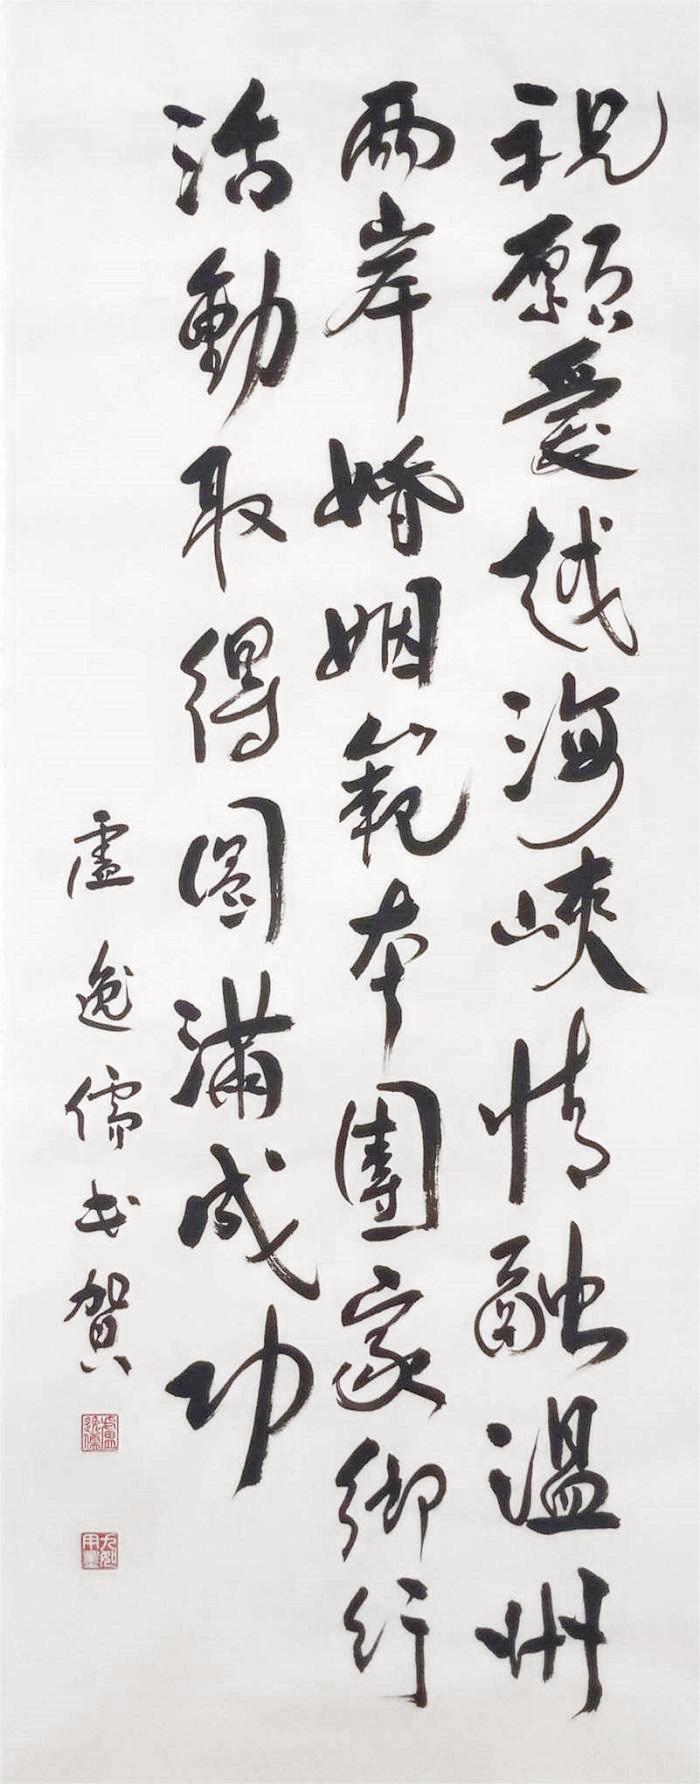 祝願愛越海峽情融溫州
兩岸婚姻範本團家鄉行
活動取得圓滿成功
盧逸儒書賀
盧逸儒